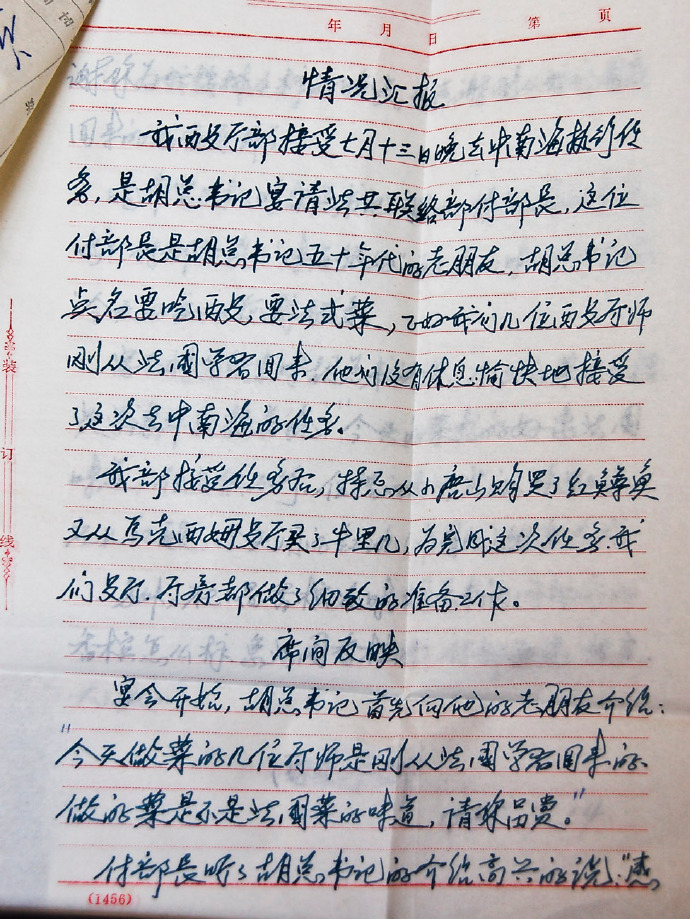 年 月 日 第 页
情况汇报
我西点厅部接受七月十三日晚去中南海执行任
务，是胡总书记宴请法共联络部付部长，这位
付部长是胡总书记五十年代的老朋友，胡总书记
点名要吃西点，要法式菜，正好我们几位西点厨师
刚从法国学习回来，他们没有休息愉快地接受
了这次去中南海的任务。
我部接受任务后，特意从小唐山购买了红鳟鱼
又从马克西姆点厅买了牛里几，为完成这次任务我
们点厅 厨房都做了细致的准备工作。
席间反映
宴会开始，胡总书记首先向他的老朋友介绍：
"今天做菜的几位厨师是刚从法国学习回来的
做的菜是不是法国菜的味道，请你品赏。"
付部长听了胡总书记的介绍高兴的说："感
装
订
线
(1456)